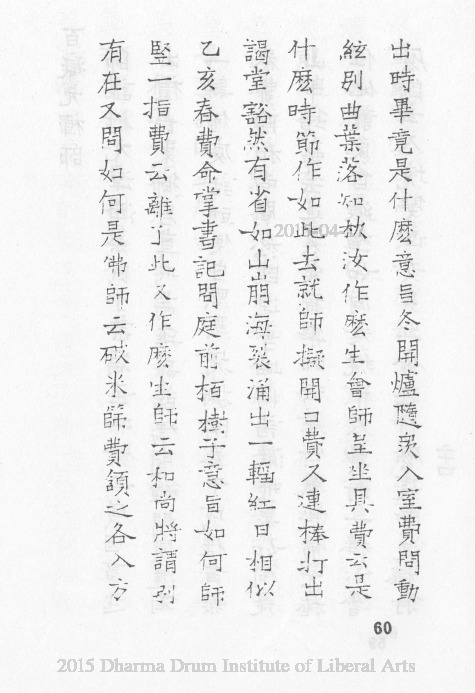 出時畢竟是什麽意旨冬開爐隨衆入室費問動
絃別曲葉落知秋汝作麽生會師呈坐具費云是
什麽時節作如此去就師擬開口費又連棒打出
謁堂豁然有省如山崩海裂涌出一輪紅日相似
乙亥春費命掌書記問庭前栢樹子意旨如何師
竪一指費云離了此又作麽生師云和尚將謂別
有在又問如何是佛師云破米篩費頷之各入方
60
2015 Dharma Drum Institute of Liberal Arts